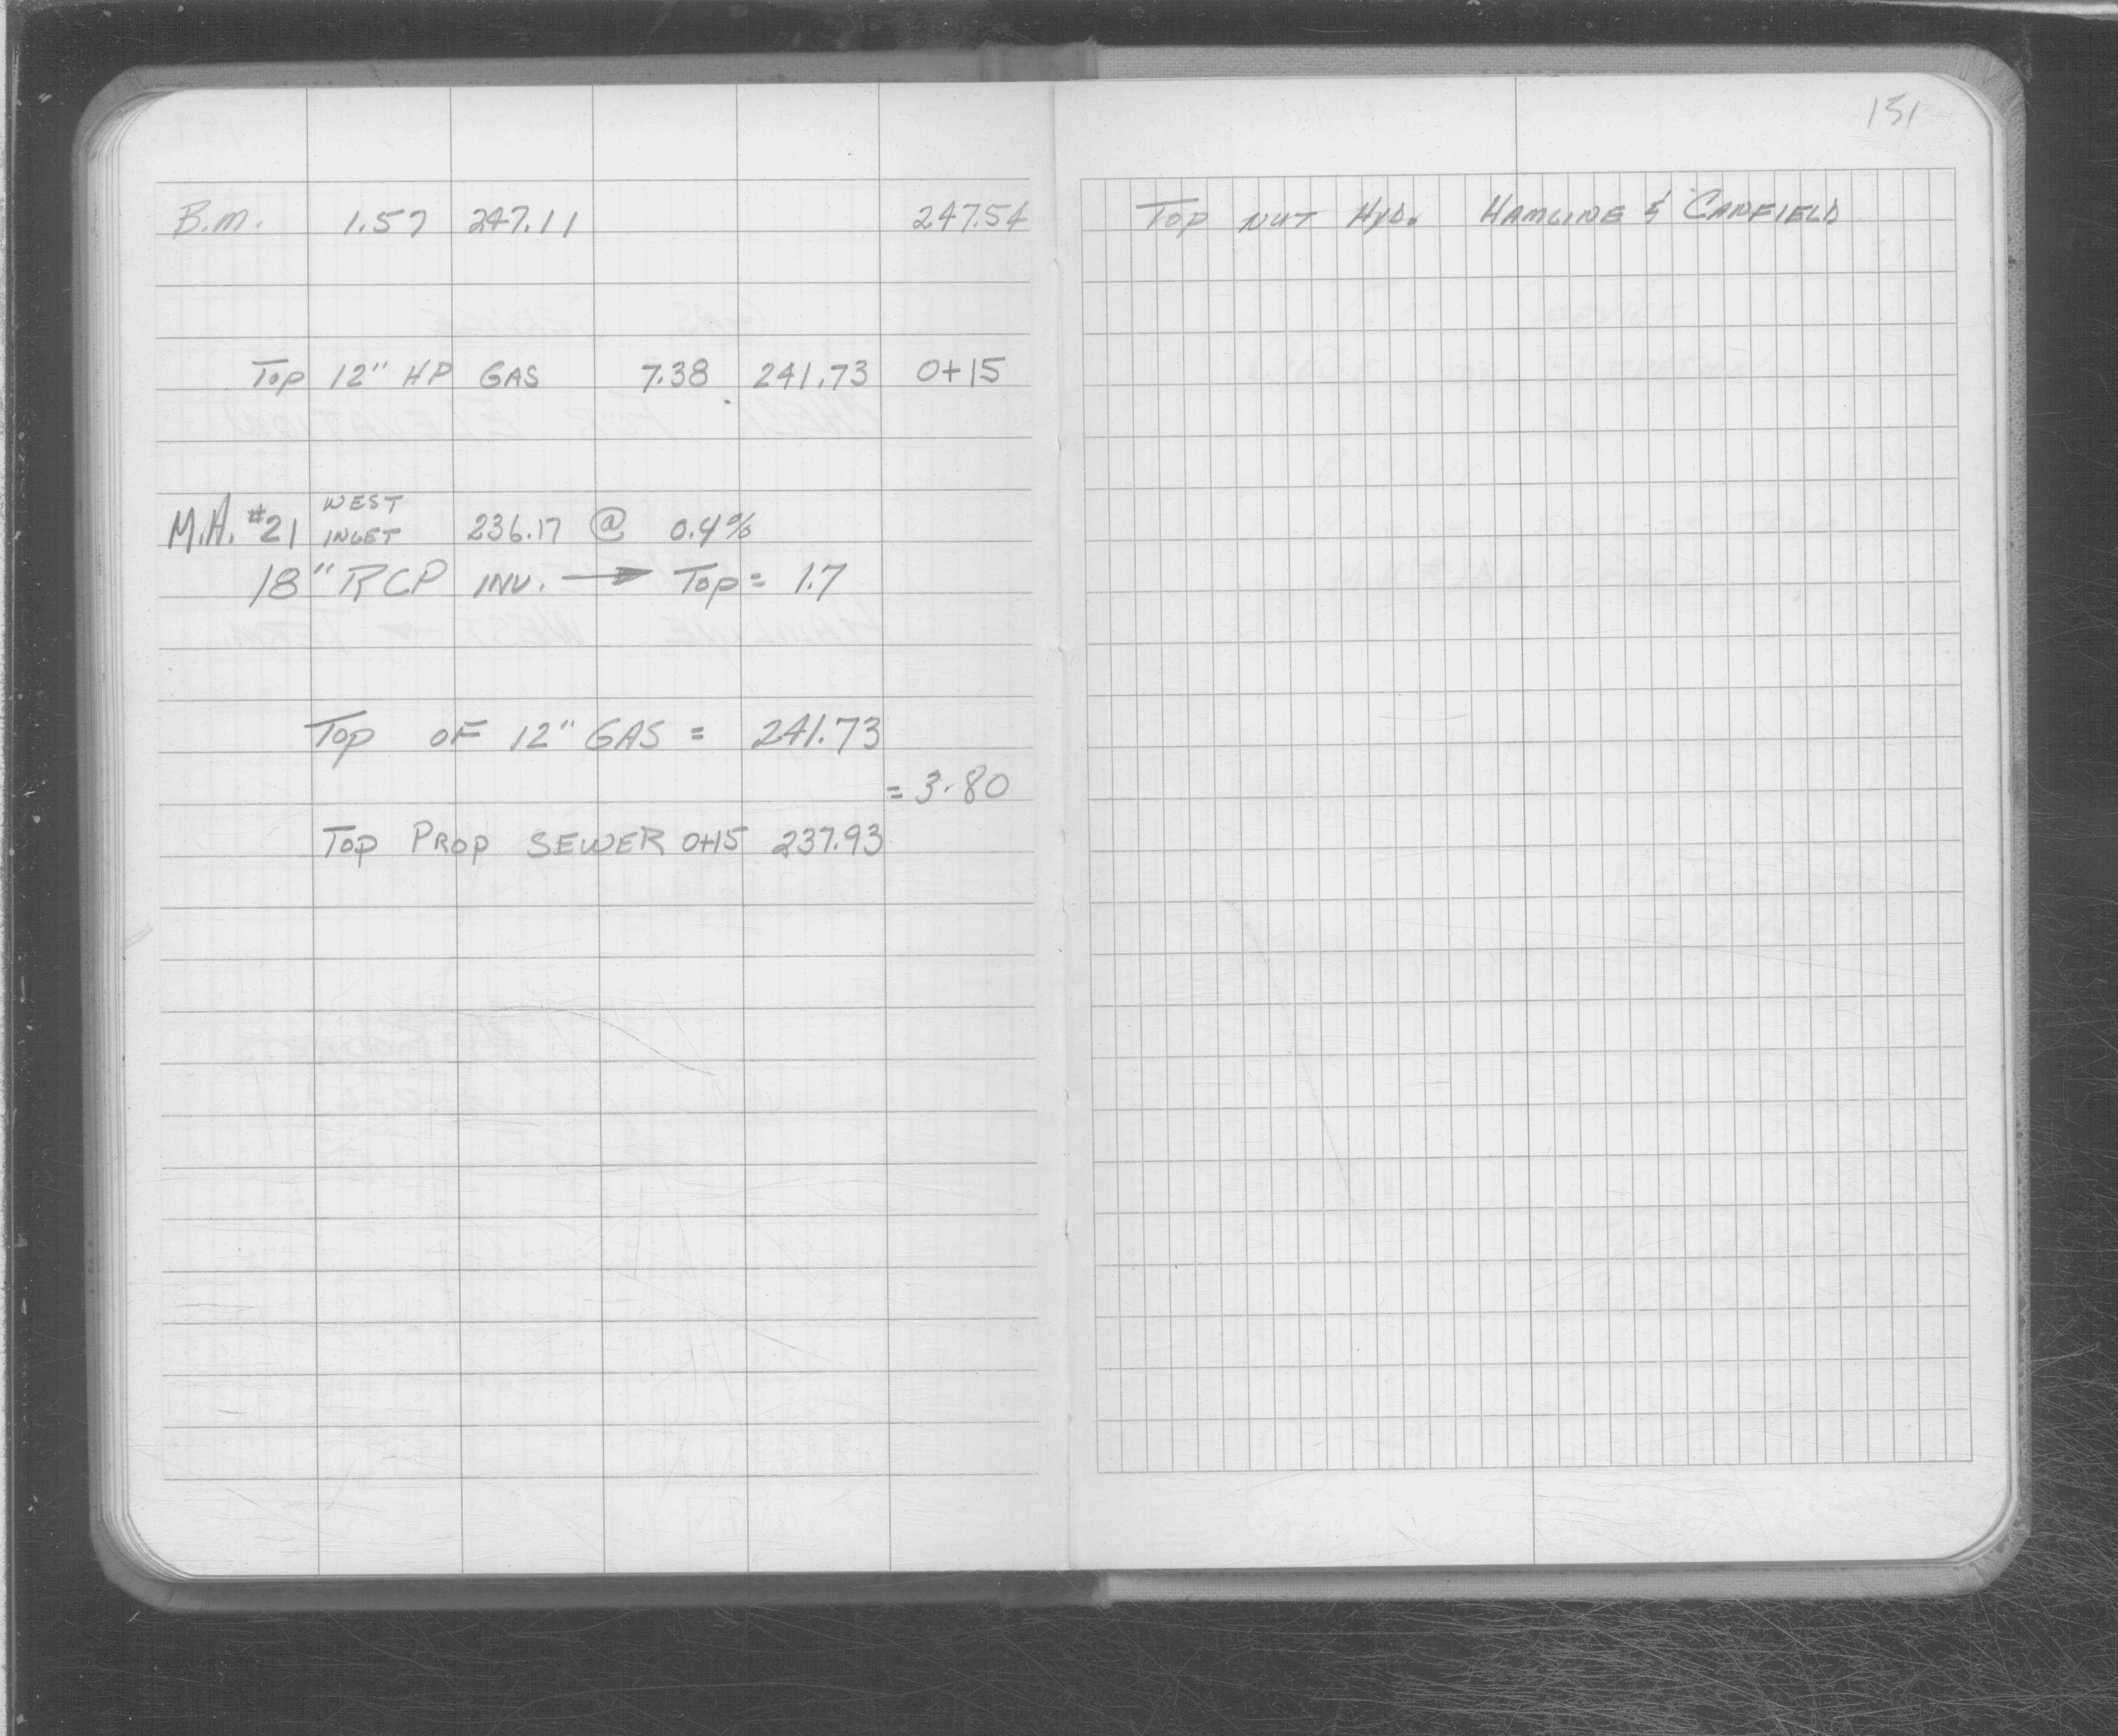 B.M. 1.57 247.11 247.54
Top 12" HP GAS 7.38 241.73 0+15
M.H. #21 WEST INLET 236.17 @ 0.4%
18" RCP INV. → Top = 1.7
Top OF 12" GAS = 241.73
= 3.80
Top PROP SEWER 0+15 237.93
151
Top NUT HYD. HAMLINE & CANFIELD